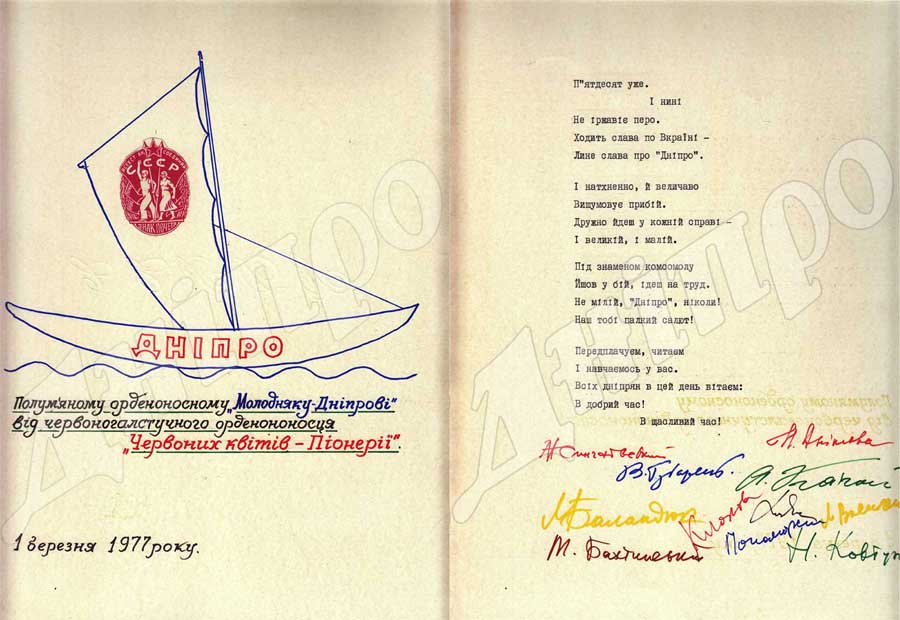 СССР
ЗНАК ПОЧЕТА
ДНІПРО
Полум'яному орденоносному „Молодняку-Дніпрові"
від червоногалстучного орденоносця
„Червоних квітів – Піонерії".
1 березня 1977 року.
П"ятдесят уже.
І нині
Не іржавіє перо.
Ходить слава по Вкраїні –
Лине слава про "Дніпро".
І натхненно, й величаво
Вишумовує прибій.
Дружно йдеш у кожній справі –
І великій, і малій.
Під знаменом комсомолу
Йшов у бій, ідеш на труд.
Не мілій, "Дніпро", ніколи!
Наш тобі палкий салют!
Передплачуєм, читаєм
І навчаємось у вас.
Всіх дніпрян в цей день вітаєм:
В добрий час!
В щасливий час!
М. Баландюк
Пономаренко
Н. Ковтун
Дніпро
Дніпро